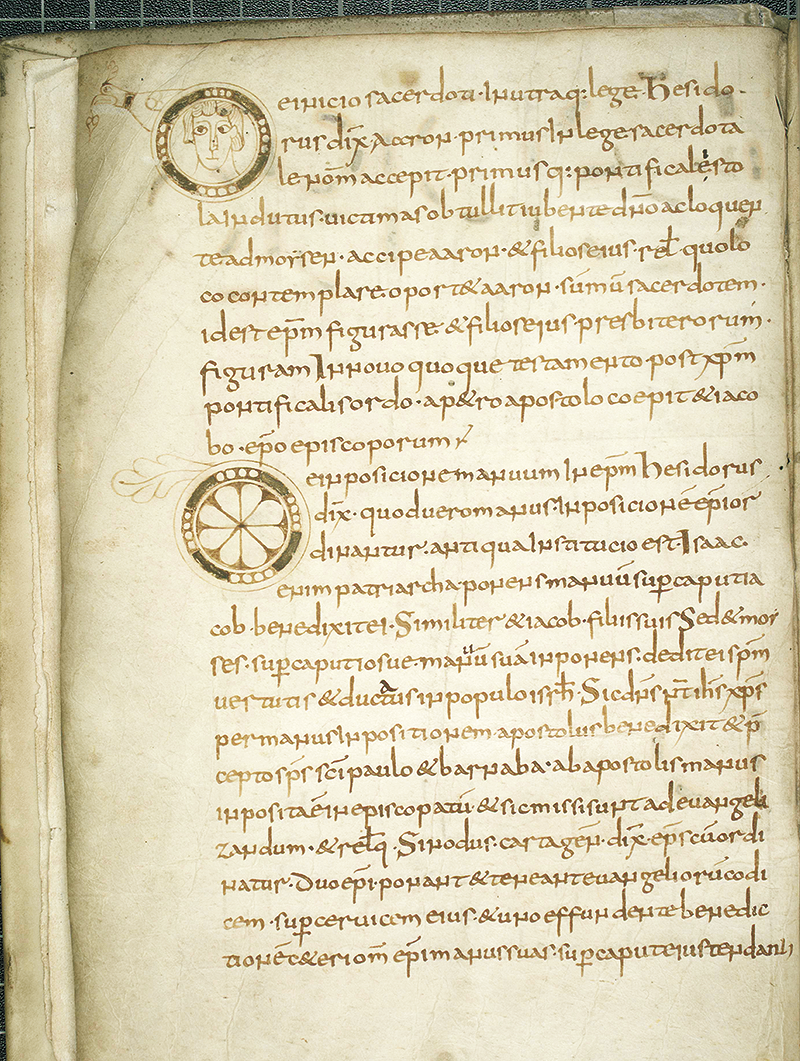 De inicio sacerdoti· In utraq: lege· Hesido-
rus dix̄ Aaron· primus In lege sacerdota
le nom̄ accepit· primusq: pontificale sto
la Indutus· uictimas obtullit iubente dn̄o ac loquen
te ad moysen· accipe aaron· & filios eius· rel̄ quo lo
co contemplare oport& aaron· sum̄ū sacerdotem·
id est ep̄m figurasse· & filios eius presbiterorum·
figuram In nouo quoque testamento· post xp̄m
pontificalis ordo· a p&ro apostolo coepit & iaco
bo· ep̄o episcoporum
De inposicione manuum In ep̄m Hesidorus
dix̄· quod uero manus· Inposicionē ep̄i or
dinantur· antiqua Institucio est· Isaac·
enim patriarcha· ponens manuū sup̄ caput ia
cob· benedixit ei· Similiter & iacob· filiis suis Sed & moy
ses· sup̄ caput iosue· manuū suā inponens· dedit ei sp̄m
uertutis & ducatus in populo isrl̄· Sic dn̄s n̄r ih̄s xp̄s
per manus Inpositionem· apostolus benedixit & p̄
cepto sp̄s sc̄i paulo & barnaba· ab apostolis manus
inposita ē in episcopatū· & sic missi sunt ad euangeli
zandum· & relq̄· Sinodus· cartagen̄· dix̄· ep̄s cū ordi
natur· Duo ep̄i· ponant & teneant euangeliorū codi
cem· sup̄ ceruicem eius· & uno effundente benedic
tionē c&eri om̄ ep̄i manus suas· sup̄ caput eius tendan